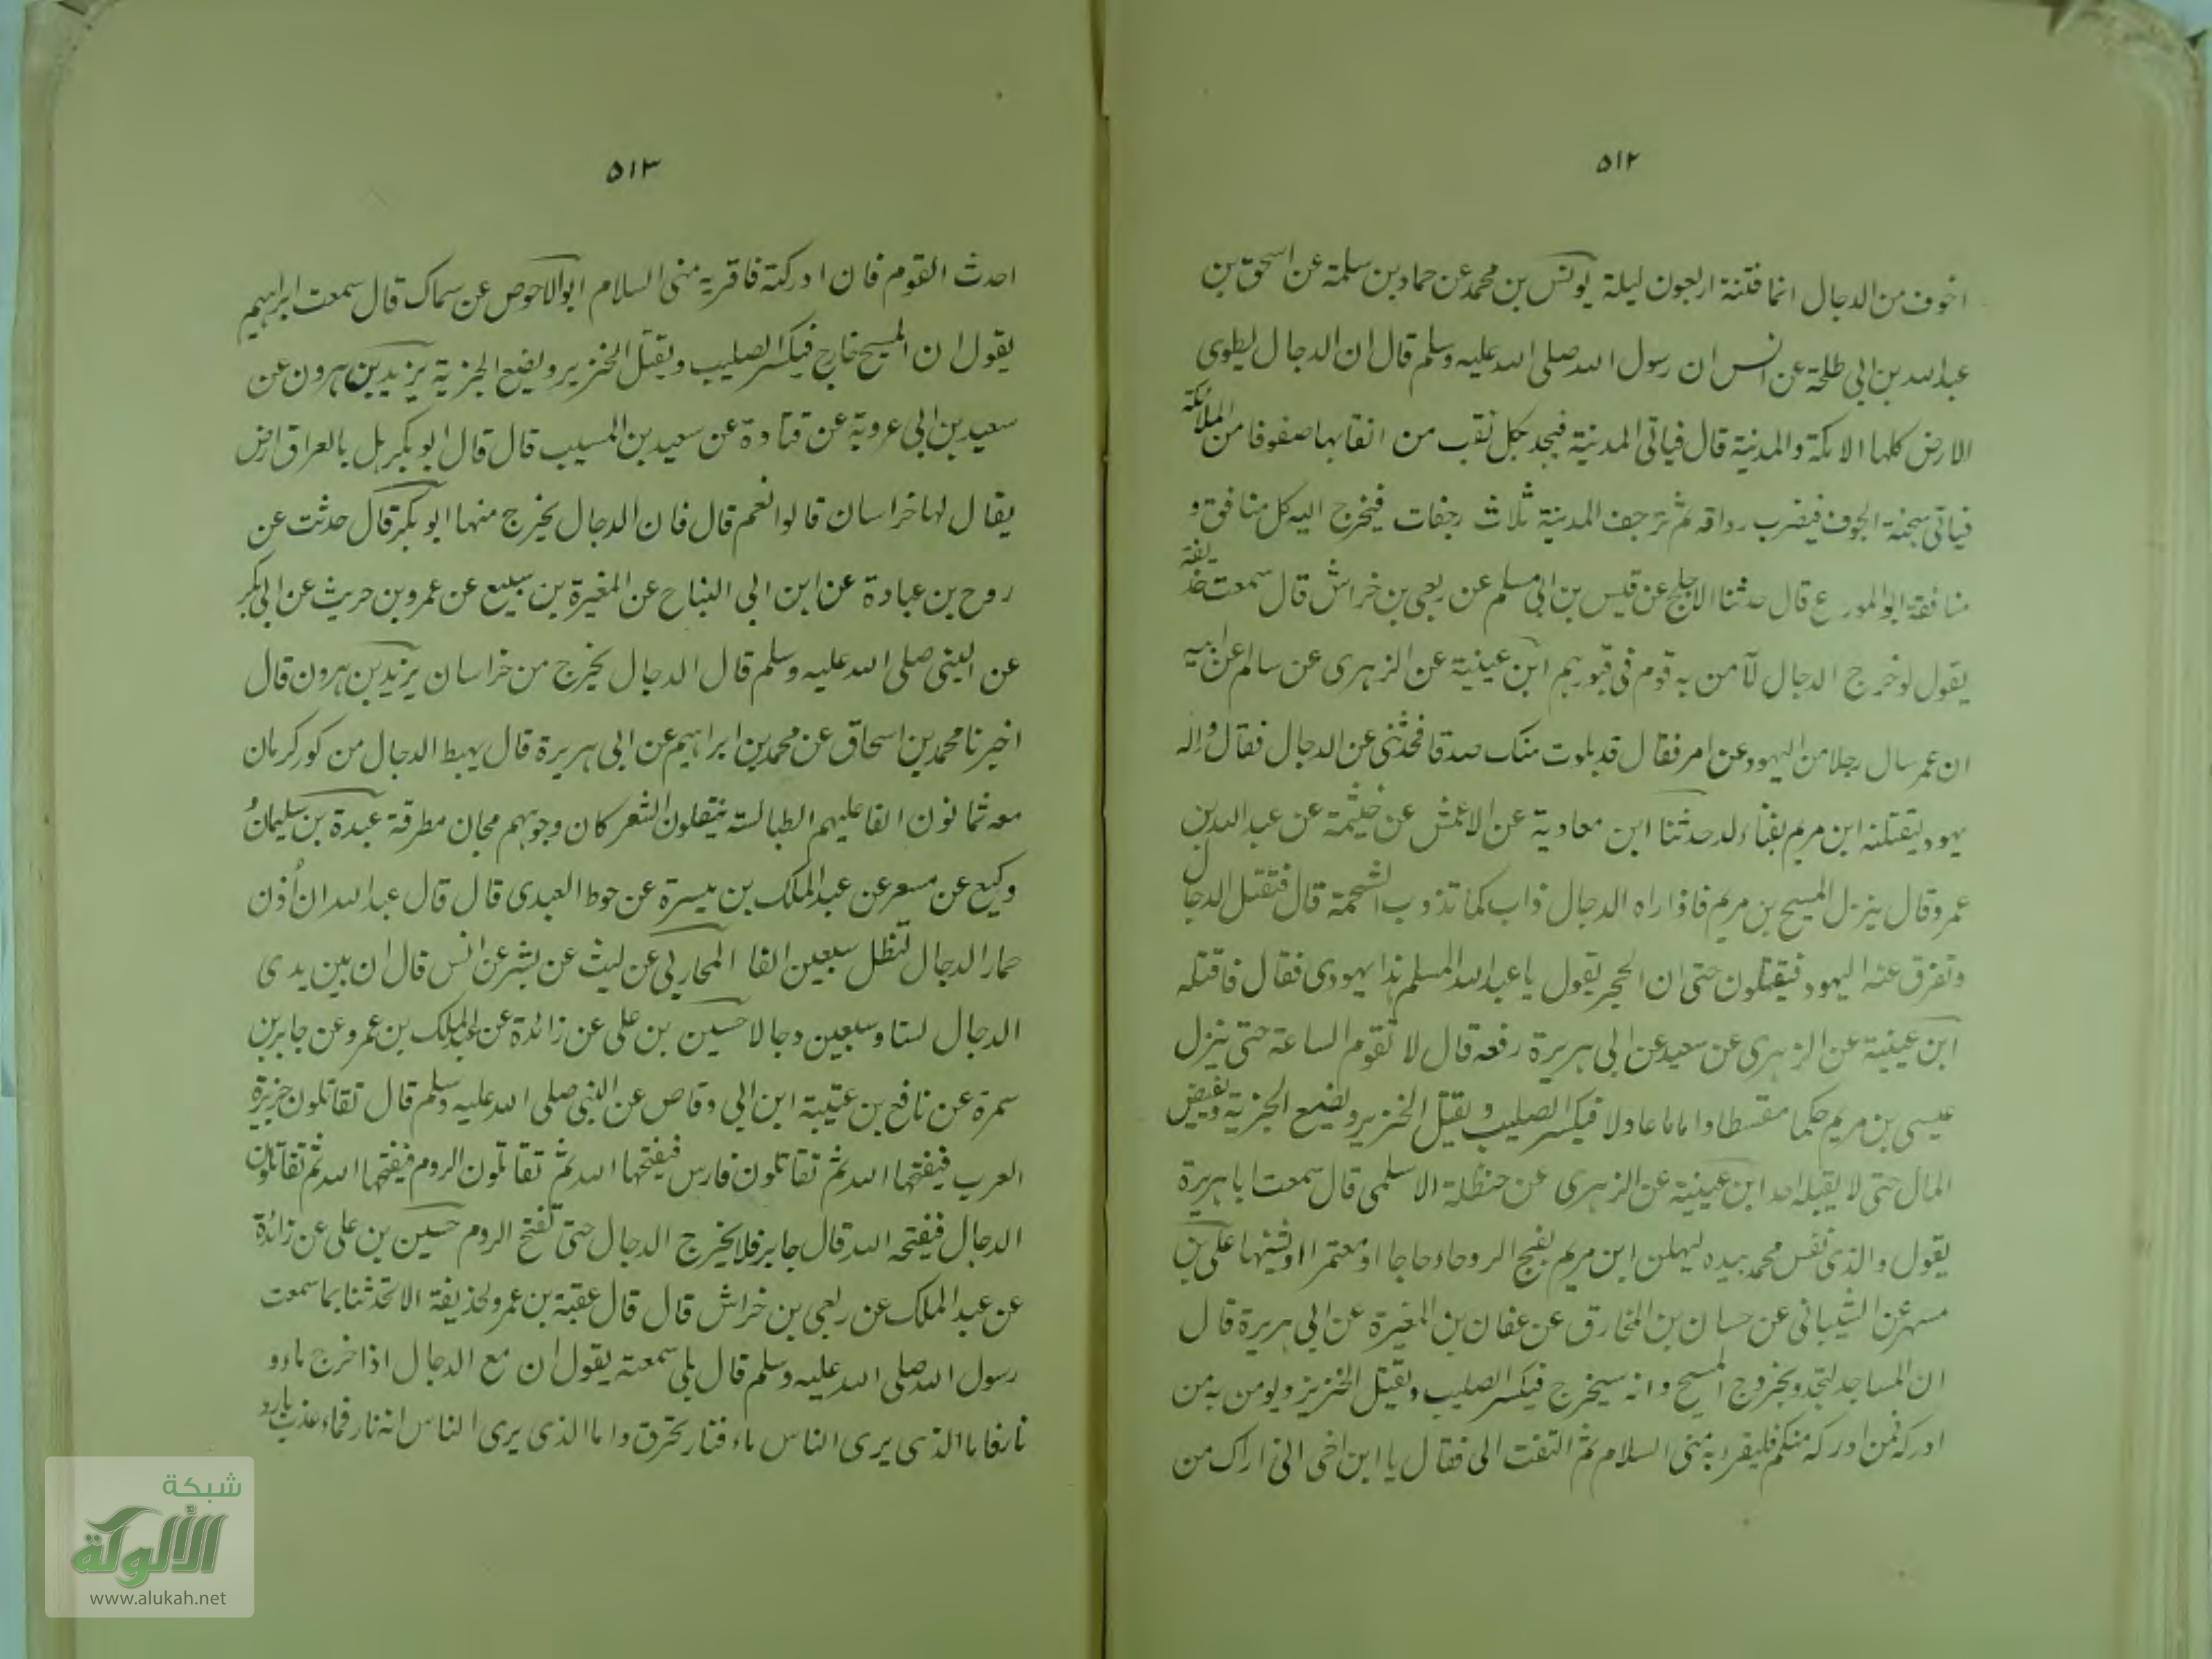 ٥١٢
اخوف من الدجال انما فتنة اربعون ليلة يونس بن محمد عن حماد بن سلمة عن اسحق بن
عبدالله بن ابي طلحة عن انس ان رسول الله صلى الله عليه وسلم قال ان الدجال يطوى
الارض كلها الا مكة والمدينة قال فياتى المدينة فيجد بكل نقب من انقابها صفوفا من الملائكة
فياتى سبخة الجوف فيضرب رواقه ثم ترجف المدينة ثلاث رجفات فيخرج اليه كل منافق و
منافقة ابو المورع قال حدثنا الاجلح عن قيس بن ابي مسلم عن ربعى بن خراش قال سمعت حذيفة
يقول لو خرج الدجال لآمن به قوم فى قبورهم ابن عيينة عن الزهرى عن سالم عن ابيه
ان عمر سال رجلا من اليهود عن امر فقال قد بلوت منك صدقا فحدثنى عن الدجال فقال واله
يهود ليقتلنه ابن مريم بفناء لد حدثنا ابن معاوية عن الاعمش عن خيثمة عن عبدالله بن
عمرو قال ينزل المسيح بن مريم فاذا راه الدجال ذاب كما تذوب الشحمة قال فتقتل الدجال
وتفرق عنه اليهود فيقتلون حتى ان الحجر يقول يا عبدالله المسلم هذا يهودى فقال فاقتله
ابن عيينة عن الزهرى عن سعيد عن ابى هريرة رفعه قال لا تقوم الساعة حتى ينزل
عيسى بن مريم حكما مقسطا واماما عادلا فيكسر الصليب و يقتل الخنزير ويضع الجزية ويفيض
المال حتى لا يقبله احد ابن عيينة عن الزهرى عن حنظلة الاسلمى قال سمعت ابا هريرة
يقول والذى نفس محمد بيده ليهلن ابن مريم بفج الروحاء حاجا او معتمرا او يثنيهما على بن
مسهر عن الشيبانى عن حسان بن المخارق عن عفان بن المغيرة عن ابى هريرة قال
ان المساجد لتجدد بخروج المسيح وانه سيخرج فيكسر الصليب ويقتل الخنزير ويومن به من
ادركه فمن ادركه منكم فليقرءه منى السلام ثم التفت الى فقال يا ابن اخى انى اراك من
٥١٣
احدث القوم فان ادركته فاقريه منى السلام ابو الاحوص عن سماك قال سمعت ابراهيم
يقول ان المسيح خارج فيكسر الصليب ويقتل الخنزير ويضع الجزية يزيد بن هرون عن
سعيد بن ابى عروبة عن قتادة عن سعيد بن المسيب قال قال ابو بكر هل بالعراق ارض
يقال لها خراسان قالوا نعم قال فان الدجال يخرج منها ابو بكر قال حدثت عن
روح بن عبادة عن ابن ابى التياح عن المغيرة بن سبيع عن عمرو بن حريث عن ابى بكر
عن النبى صلى الله عليه وسلم قال الدجال يخرج من خراسان يزيد بن هرون قال
اخبرنا محمد بن اسحاق عن محمد بن ابراهيم عن ابى هريرة قال يهبط الدجال من كور كرمان
معه ثمانون الفا عليهم الطيالسة ينتعلون الشعر كان وجوههم مجان مطرقة عبدة بن سليمان و
وكيع عن مسعر عن عبد الملك بن ميسرة عن حوط العبدى قال قال عبدالله ان اُذن
حمار الدجال لتظل سبعين الفا المحاربى عن ليث عن بشر عن انس قال ان بين يدى
الدجال لستا وسبعين دجالا حسين بن على عن زائدة عن عبد الملك بن عمرو عن جابر بن
سمرة عن نافع بن عتيبة ابن ابى وقاص عن النبى صلى الله عليه وسلم قال تقاتلون جزيرة
العرب فيفتحها الله ثم تقاتلون فارس فيفتحها الله ثم تقاتلون الروم فيفتحها الله ثم تقاتلون
الدجال فيفتحه الله قال جابر فلا يخرج الدجال حتى تفتح الروم حسين بن على عن زائدة
عن عبد الملك عن ربعى بن خراش قال قال عقبة بن عمرو لحذيفة الا تحدثنا بما سمعت
رسول الله صلى الله عليه وسلم قال بلى سمعته يقول ان مع الدجال اذا خرج ماء و
نارفاما الذى يرى الناس ماء فنار تحرق واما الذى يرى الناس انه نار فماء عذب بارد
شبكة
الألوكة
www.alukah.net